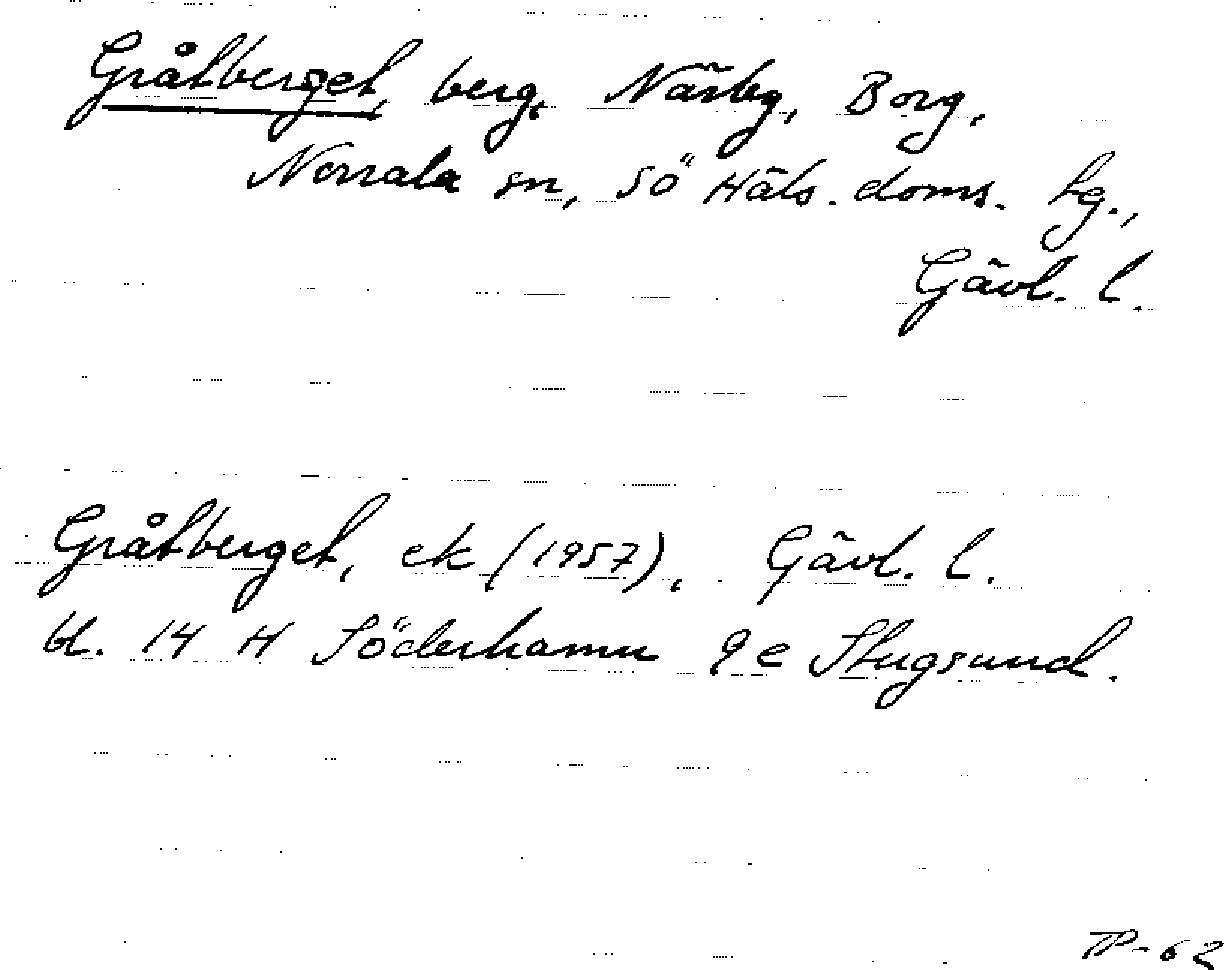 Gråtberget, berg, Närby, Borg,
Norrala sn, Sö Häls. doms. hg.,
Gävl. l.
Gråtberget, ek (1957), Gävl. l.
bl. 14 H Söderhamn 9e Stugsund.
TP-62